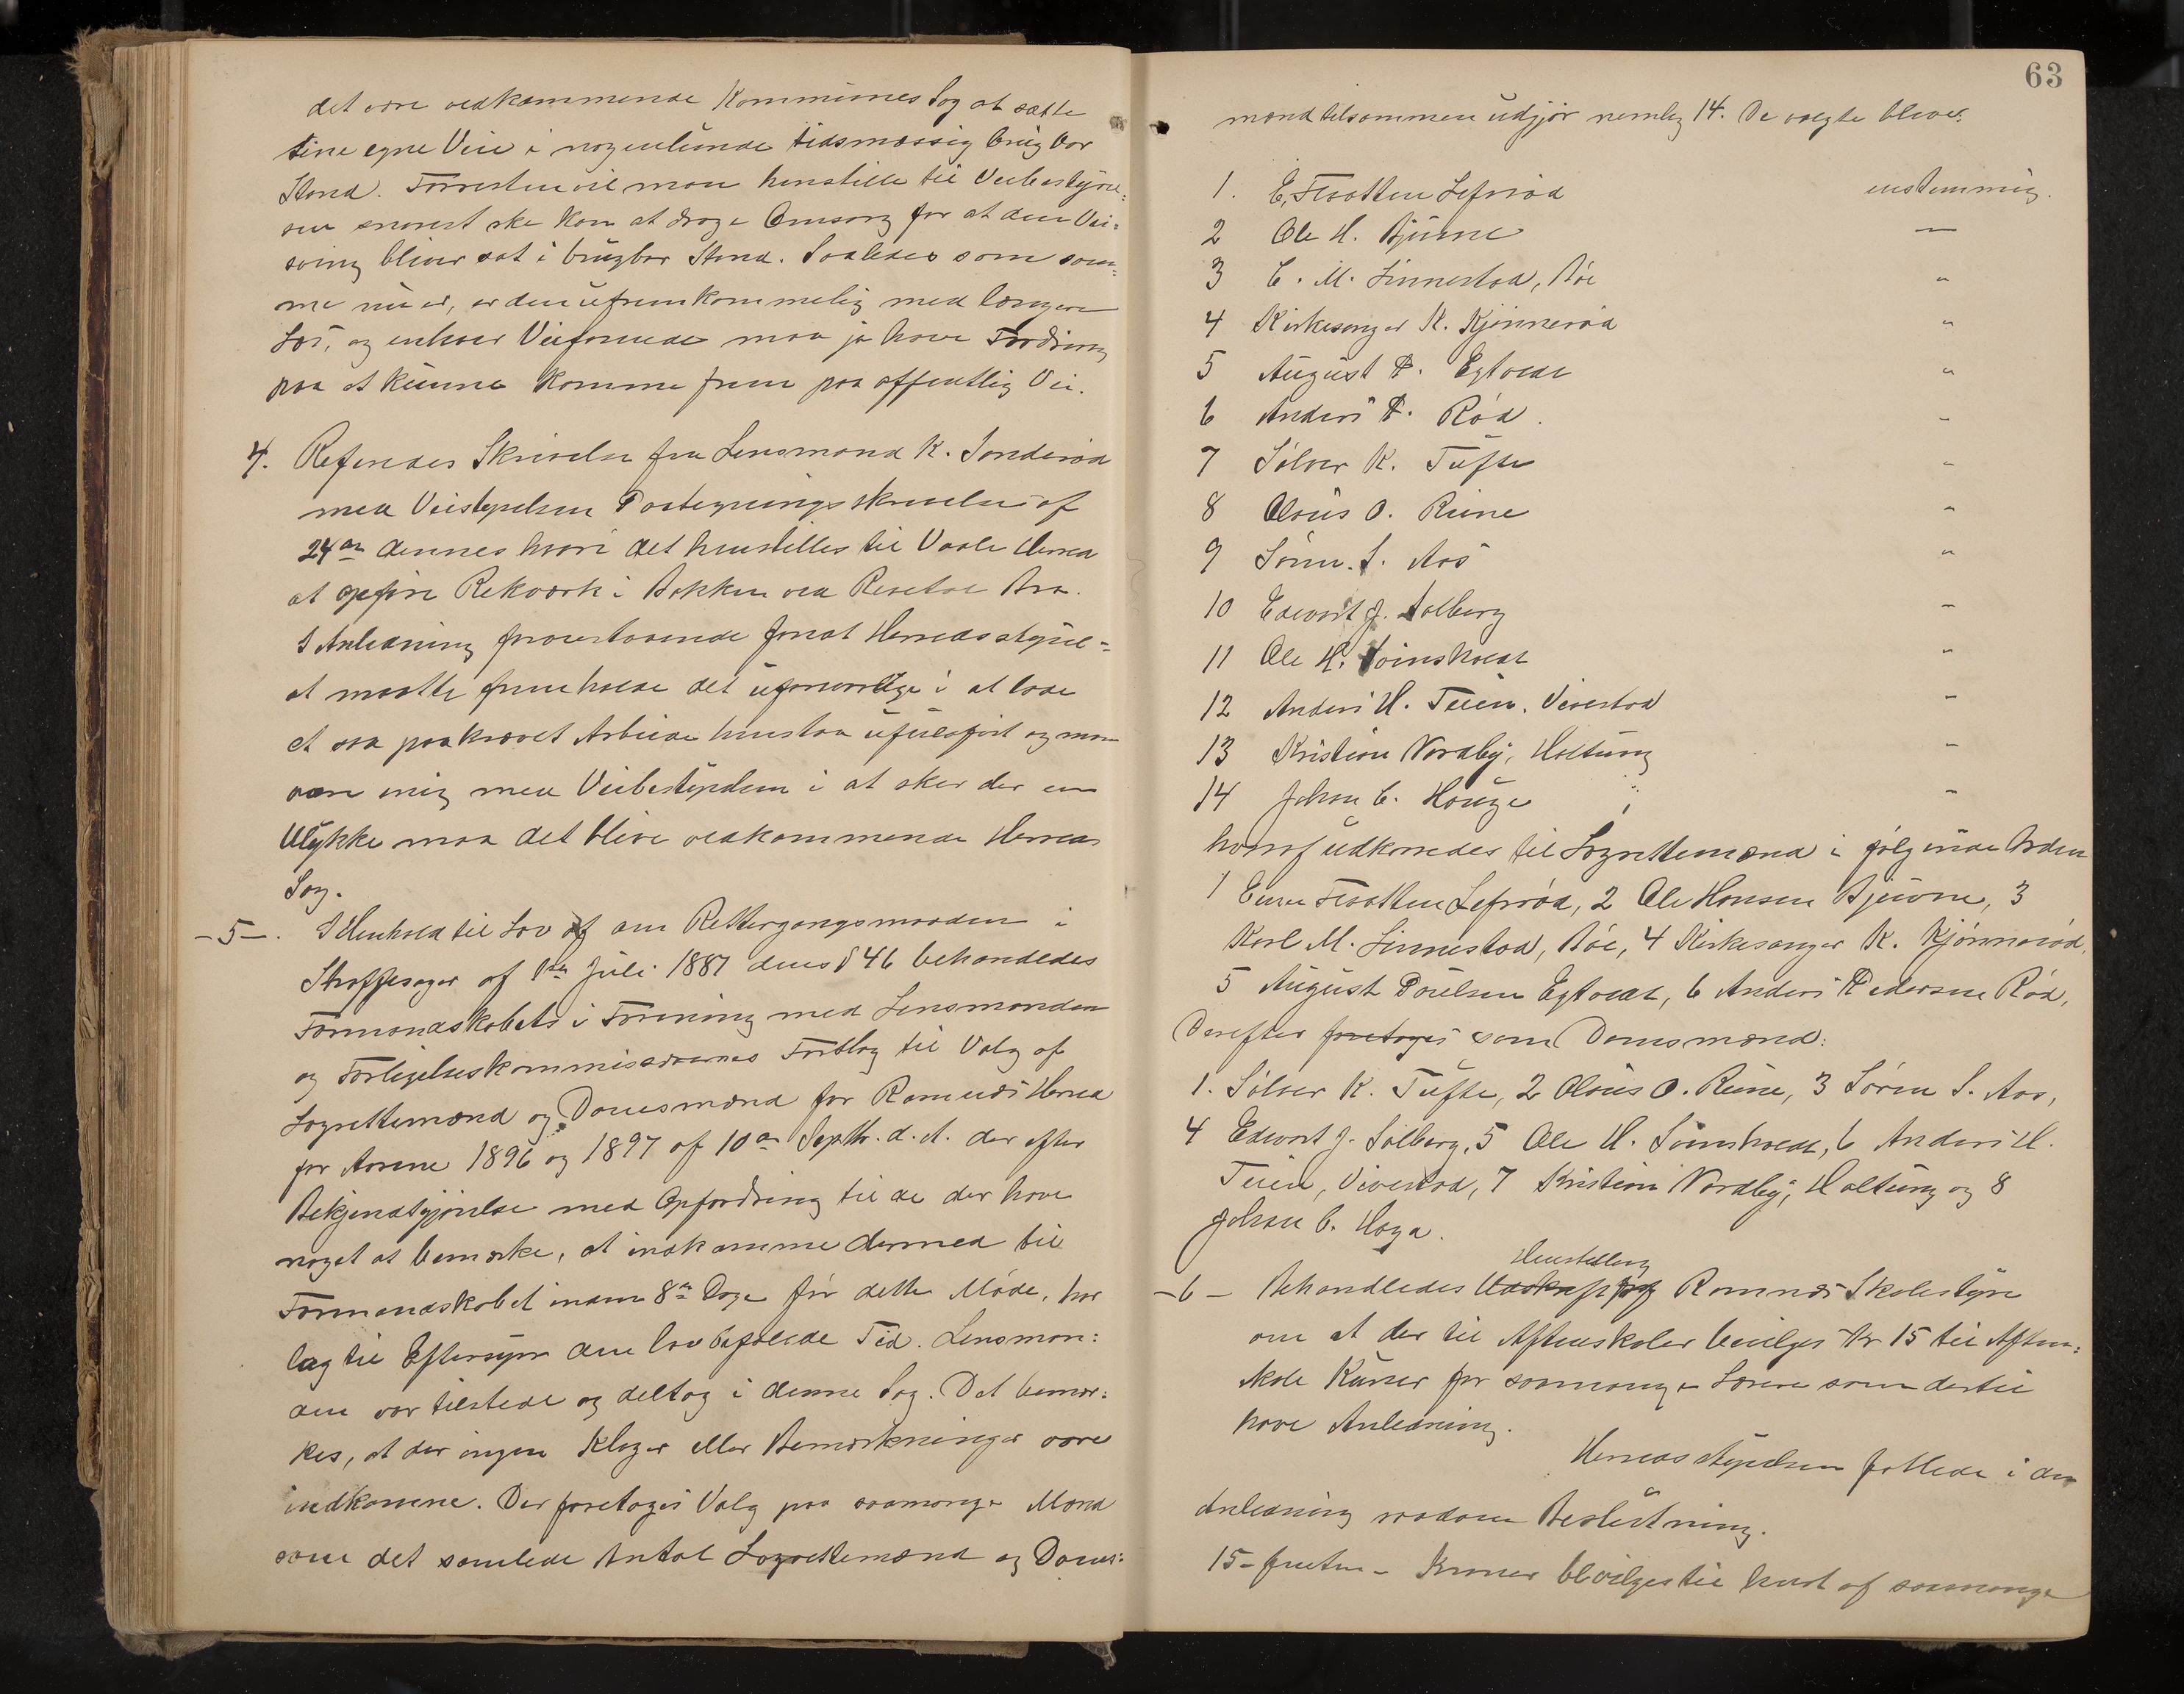 det være vedkommende Kommunes Sag at sætte
sine egne Veie i nogenlunde tidsmæssig brugbar
Stand. Forresten vil man henstille til Veibestyrel:
sen snarest ske kan at drage Omsorg for at den Vei:
sving bliver sat i brugbar Stand. Saaledes som sam:
me nu er, er den ufremkommelig med længere
Læs, og enhver Veifarende maa jo have Fordring
paa at kunne komme frem paa offentlig Vei.
4. Referedes Skrivelse fra Lensmand K. Sønderød
med Veistyrelsens Paategningsskrivelse af
24de dennes hvori det henstilles til Vaale Herred
at opføre Rekværk i Bakken ved Revetal Bro.
I Anledning forestaaende formaat Herredsstyrel=
at maatte fremholde det uforsvarlige i at lade
et saa paakrævet Arbeide henstaa ufuldført og man
være enig med Veibestyrelsen i at sker der en
Ulykke maa det blive vedkommende Herreds
Sag.
-5-. I Henhold til Lov af om Rettergangsmaaden i
Straffesager af 1ste Juli 1887 dens § 46 behandledes
Formandskabets i Forening med Lensmanden
og Forligelseskommissærernes Forslag til Valg af
Lagrettemænd og Domsmænd for Ramnæs Herred
for Aarene 1896 og 1897 af 10de Septbr. d. A. der efter
Bekjendtgjørelse med Opfordring til de der have
noget at bemærke, at indkomme dermed til
Formandskabet inden 8te Dage før dette Møde, har
lagt til Eftersyn den lovbefalede Tid. Lensman:
den var tilstede og deltog i denne Sag. Det bemær:
kes, at der ingen Klager eller Bemærkninger vare
indkomne. Der foretoges Valg paa saamange Mænd
som det samlede Antal Lagrettemænd og Doms:
63
mænd tilsammen udgjør nemlig 14. De valgte bleve:
1. E. Flaatten Lefsrød enstemmig.
2 Ole H. Bjuerne —
3 C. M. Linnestad, Bøe "
4 Kirkesanger K. Kjønnerød "
5 August P. Egtvedt "
6 Anders P. Rød. "
7 Sølver K. Tufte "
8 Olaus O. Rune "
9 Søren S. Aas "
10 Edvart J. Solberg "
11 Ole H. Sømshovdt "
12 Anders H. Teien, Vivestad "
13 Kristian Nordby, Holtung "
14 Johan C. Hauge i "
hvoraf udkaaredes til Lagrettemænd i følgende Orden
1 Einer Flaatten Lefsrød, 2 Ole Hansen Bjuerne, 3
Karl M. Linnestad, Bøe, 4 Kirkesanger K. Kjønnerød,
5 August Poulsen Egtvedt, 6 Anders Pedersen Rød,
Derefter foretoges som Domsmænd:
1. Sølver K. Tufte, 2 Olaus O. Rune, 3 Søren S. Aas,
4 Edvart J. Solberg, 5 Ole H. Sømshovdt, 6 Anders H.
Teien, Vivestad, 7 Kristian Nordby, Holtung og 8
Johan C. Hage.
Henstilling
-6- Behandledes fra Ramnæs Skolestyre
om at der til Aftenskoler bevilges Kr 15 til Aften:
skole Kurser for saamange Lærere som dertil
have Anledning.
Herredsstyrelsen fattede i den
Anledning saadan Beslutning.
15- femten - Kroner bevilges til hvert af saamange